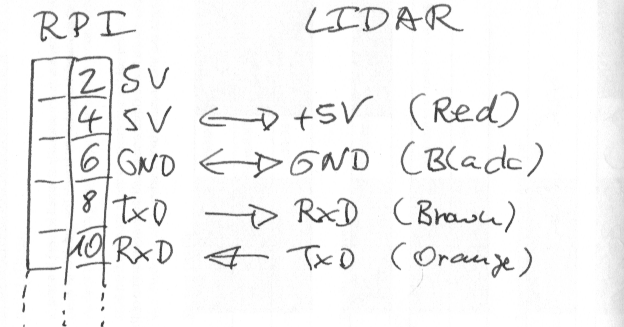 RPI LIDAR
2 5V
4 5V <-> +5V (Red)
6 GND <-> GND (Black)
8 TxD -> RxD (Brown)
10 RxD <- TxD (Orange)